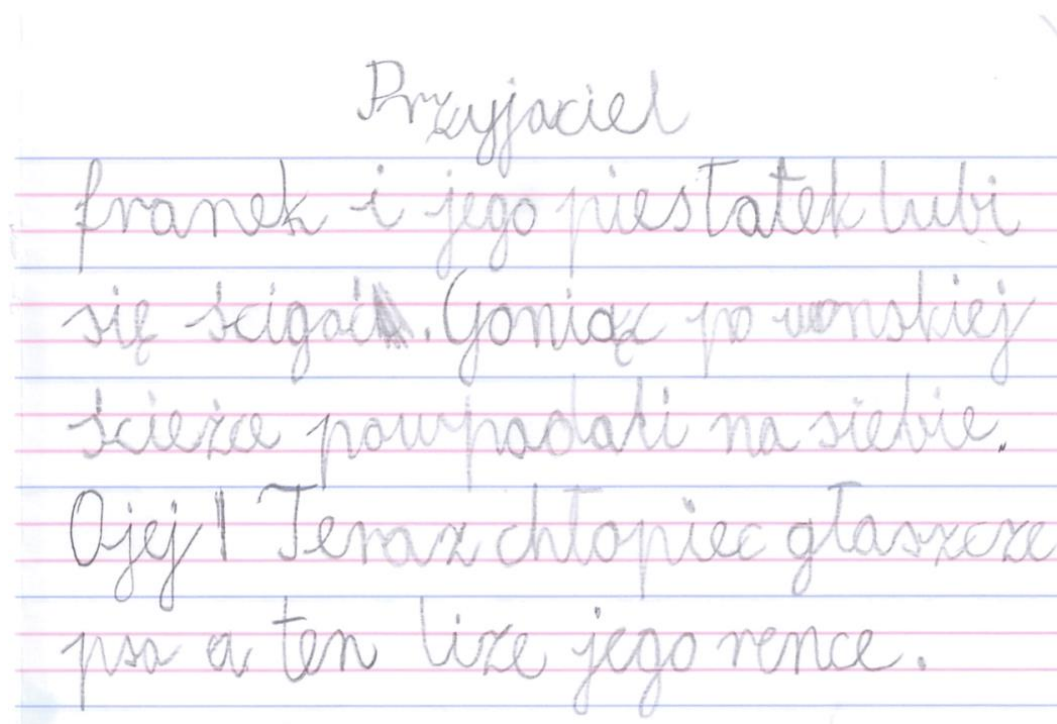 Przyjaciel
franek i jego piestatek lubi
się ścigać. Goniąc po wonskiej
ścieżce powpadali na siebie.
Ojej! Teraz chłopiec głaszcze
psa a ten liże jego rence.